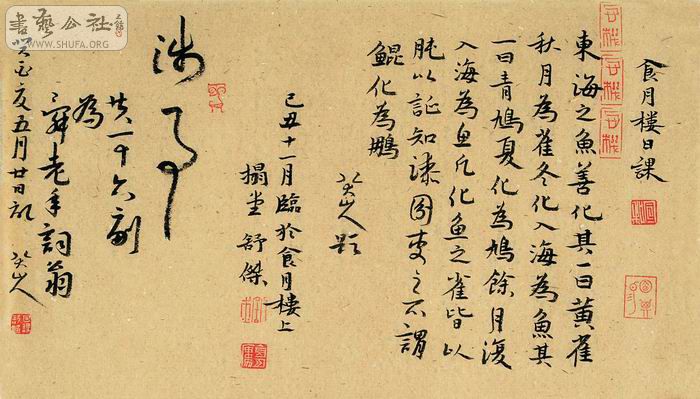 食月樓日課
東海之魚善化其一曰黃雀
秋月為雀冬化入海為魚其
一曰青鳩夏化為鳩餘月復
入海為魚凡化魚之雀皆以
肫以証知漆園吏之所謂
鯤化為鵬
八大山人題
己丑十一月臨於食月樓上
搨堂 舒傑
涉事
共一十六副
為
老年詞翁
癸酉夏五月廿日記 八大山人
書藝公社
WWW.SHUFA.ORG